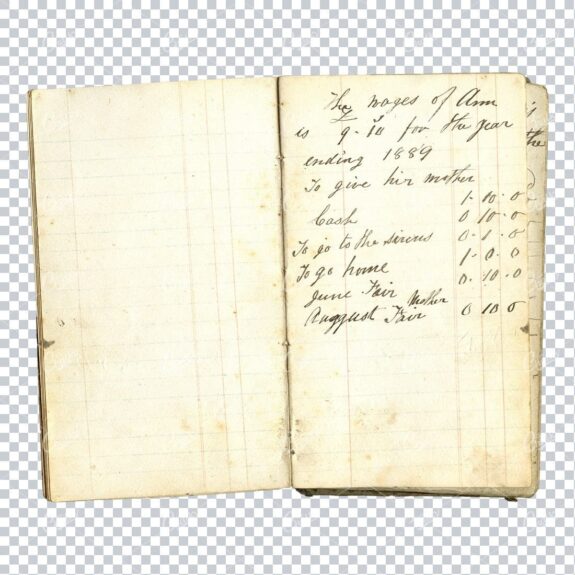 The wages of Ann
is 9-10 for the year
ending 1889
To give hir mother
1. 10. 0
Cash 0 10. 0
To go to the sirous 0. 1. 0
To go home 1. 0. 0
June Fair 0. 10. 0
Mother
Auggust Fair 0 10 0
the